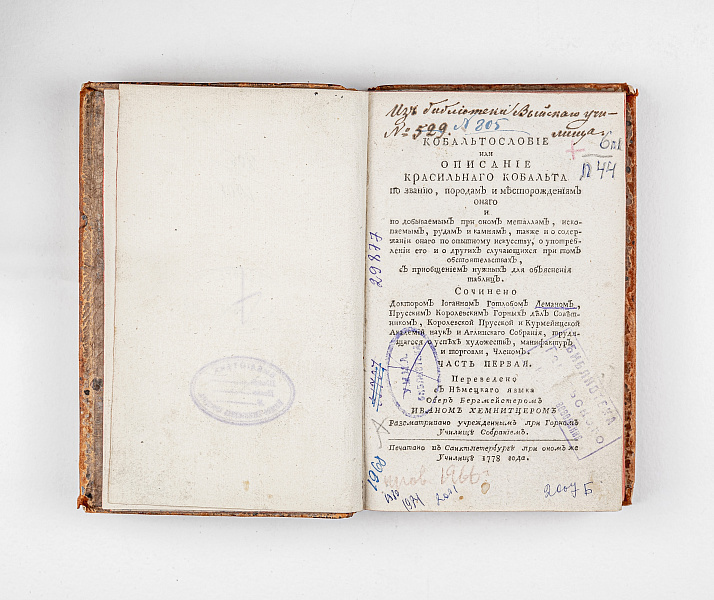 Изъ библіотеки Выйскаго учи-
лища
№ 529. № 805
6 п1
П 44
КОБАЛЬТОСЛОВІЕ
или
ОПИСАНІЕ
КРАСИЛЬНАГО КОБАЛЬТА
по званію, породамъ и мѣсторожденіямъ
онаго
и
по добываемымъ при ономъ металламъ, иско-
паемымъ, рудамъ и камнямъ, также и о содер-
жаніи онаго по опытному искуству, о употреб-
леніи его и о другихъ случающихся при томъ
обстоятельствахъ,
съ пріобщеніемъ нужныхъ для объясненія
таблицъ.
Сочинено
Докторомъ Іоганномъ Готлобомъ Леманомъ,
Прусскимъ Королевскимъ Горныхъ дѣлъ Совѣт-
никомъ, Королевской Прусской и Курмейнцкой
Академіи наукъ и Аглинскаго Собранія, трудя-
щагося о успѣхѣ художествъ, манифактуръ
и торговли, Членомъ.
ЧАСТЬ ПЕРВАЯ.
Переведено
съ Нѣмецкаго языка
Оберъ Бергмейстеромъ
ИВАНОМЪ ХЕМНИТЦЕРОМЪ
Разсматривано учрежденнымъ при Горномъ
Училищѣ Собраніемъ.
Печатано въ Санктпетербургѣ при ономъ же
Училищѣ 1778 года.
29877
1968
1966
1974
2011
2007 Б
БИБЛИОТЕКА